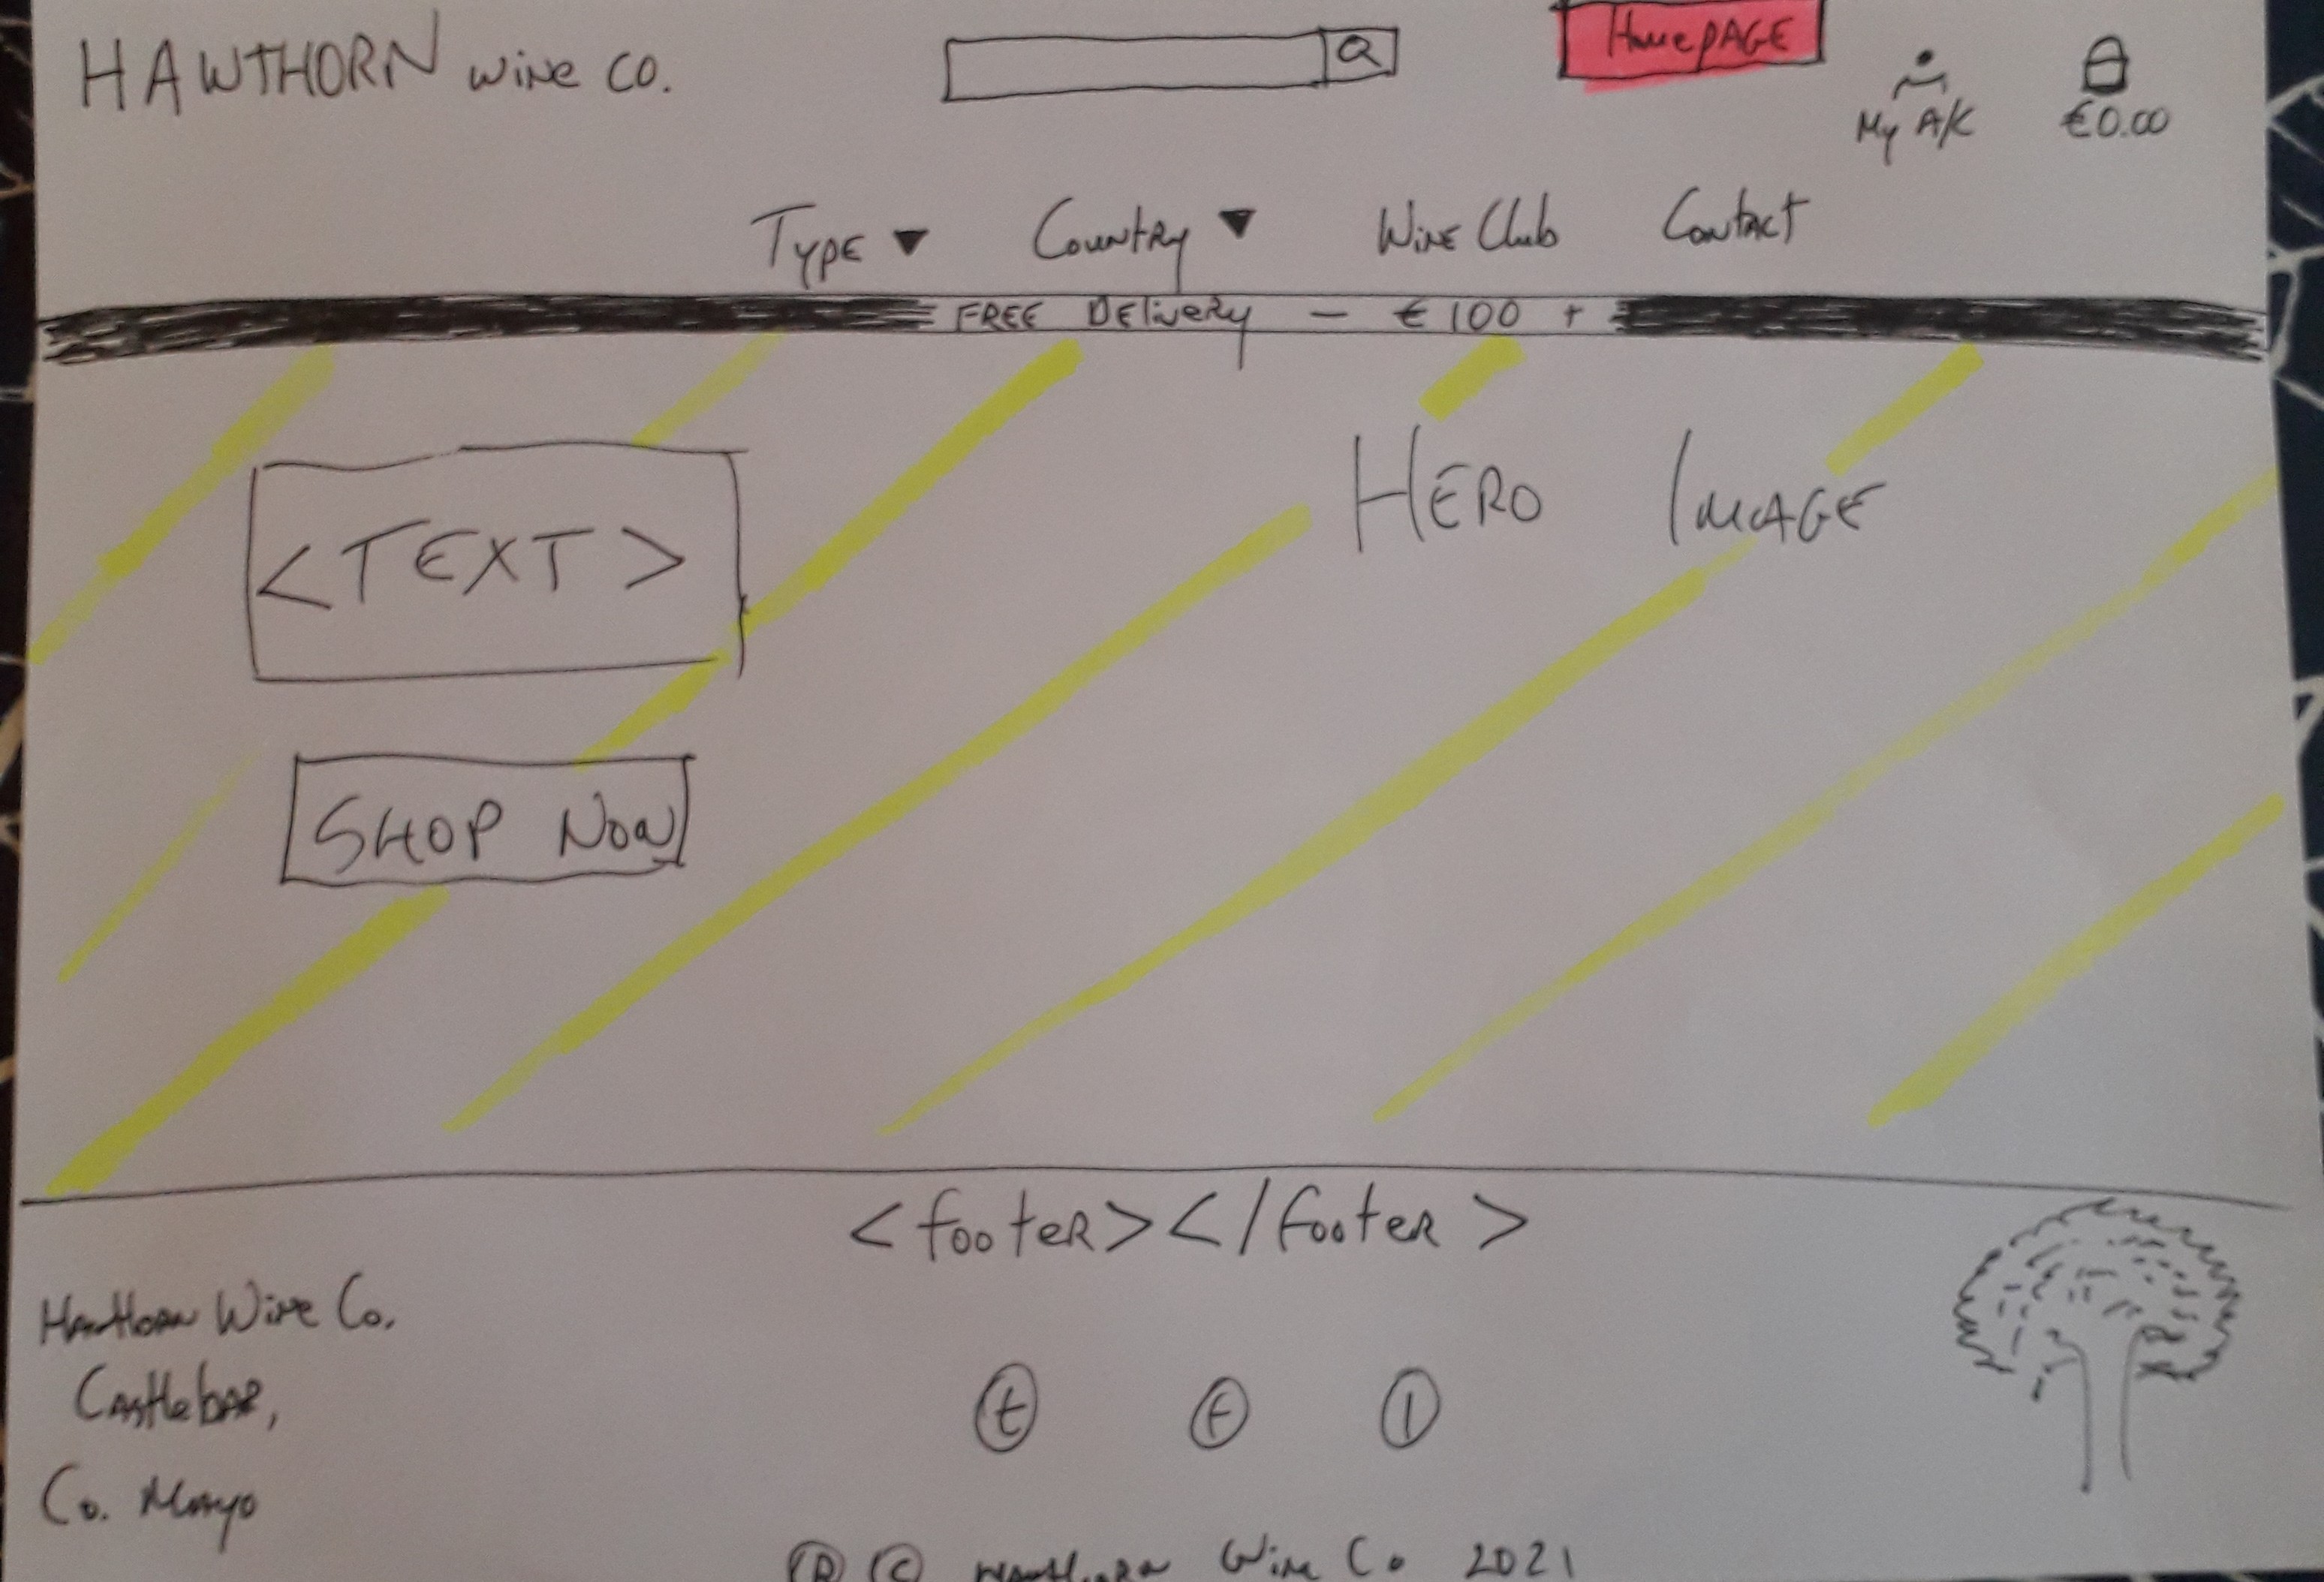 HAWTHORN wine co.
HomepAGE
My A/C
€0.00
Type ▼ Country ▼ Wine Club Contact
FREE Delivery — € 100 +
<TEXT>
HERO IMAGE
SHOP NOW
<footer></footer>
Hawthorn Wine Co.
Castlebar,
Co. Mayo
t f I
® © Hawthorn Wine Co 2021